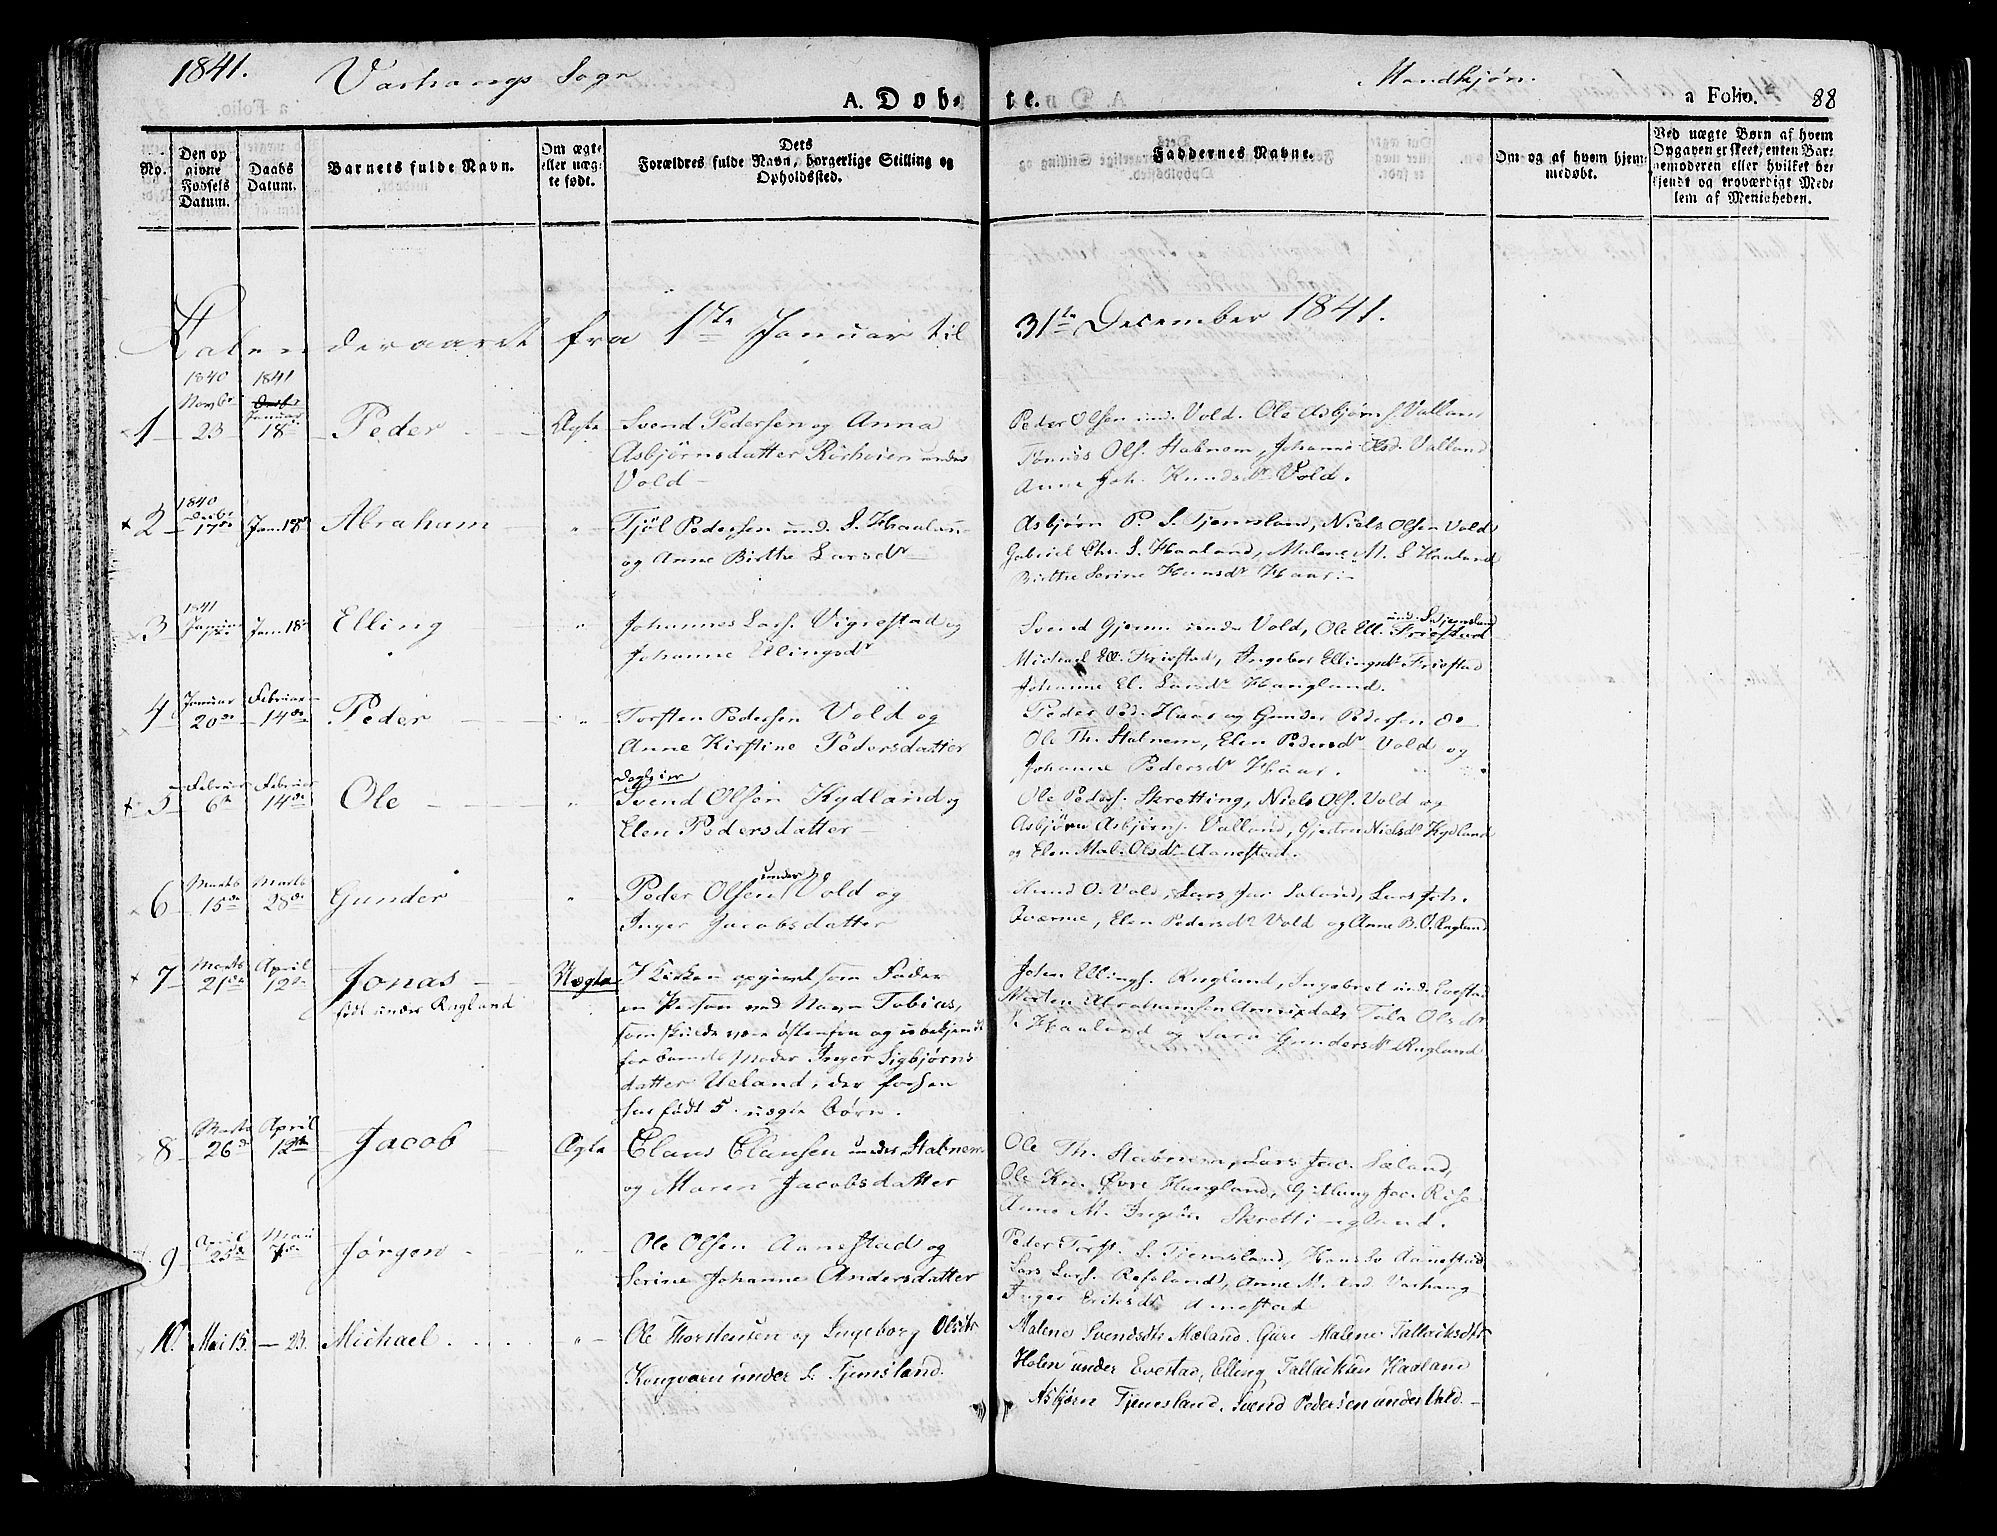 1841. Varhaugs Sogn Mandkjøn.
A. Døbte. a Folio. 88
No. Den opgivne Fødsels Datum. Daabs Datum. Barnets fulde Navn. Om ægte eller uægte født. Dets Forældres fulde Navn, borgerlige Stilling og Opholdssted. Faddernes Navne. Om og af hvem hjemmedøbt. Ved uægte Børn af hvem Opgaven er skeet, enten Barnemoderen eller hvilket bekjendt og troværdigt Medlem af Menigheden.
Kalenderaaret fra 1te Januar til 31te December 1841.
1840 1841
Novbr Januar
1 23 18de Peder Ægte Svend Pedersen og Anna
Asbjørnsdatter Rørheien under
Vold
Peder Olsen und. Vold. Ole Asbjørns. Valland
Tønnes Ols. Stabnem, Johanne Olsd. Valland
Anne Joh. Knudsdr Vold.
1840
Decbr
2 17de Jan. 18de Abraham " Tjøl Pedersen und. S. Haaland
og Anne Birthe Larsdr
Asbjørn P. S. Tjemsland, Niels Olsen Vold
Gabriel Chr. S. Haaland, Malene M. S. Haaland
Birthe Serine Hansdr Haar.
1841
3 Januar Jan. 18de Elling " Johannes Lars. Vigrestad og
Johanne Ellingsdr
und. S. Tjemsland
Svend Gjerm. under Vold, Ole Ell. Friestad
Michael Ell. Friestad, Ingebor Ellingsdr Friestad
Johanne El. Larsdr Haugland.
4 Januar 20de Februar 14de Peder " Torsten Pedersen Vold og
Anne Kirstine Pedersdatter
Peder Ped. Haar og Gunder Pedersen do
Ole Th. Stabnem, Elen Pedersdr Vold og
Johanne Pedersdr Haar.
5 Februar 6te Februar 14de Ole " Svend Olsen Kydland og
Elen Pedersdatter
Ole Peders. Skretting, Niels Ols. Vold og
Asbjørn Asbjørns. Valland, Gjertru Nielsdr Kydland
og Elen Mal. Olsdr Aanestad.
6 Marts 15de Marts 28de Gunder " Peder Olsen under Vold og
Inger Jacobsdatter
Knud O. Vold, Lars Jac Sæland, Lars Joh.
Tværme, Elen Pedersdr Vold og Anne B. O. Rugland
7 Marts 21de April 12te Jonas Uægte I Kirken opgivet som Fader
født under Rugland
en Person ved Navn Tobias,
som skulde være østenfra og ubekjendt
for Barnets Moder Inger Sigbjørns
datter Ueland, der forhen
har født 5 uægte Børn.
John Ellings. Rugland, Ingebret und. Evestad
Morten Abrahamsen Anniksdal, Tale Olsdr
S. Haaland og Sara Gundersdr Rugland
8 Marts 26de April 12te Jacob Ægte Claus Clausen under Stabnem
og Maren Jacobsdatter
Ole Th. Stabnem, Lars Jac. Sæland,
Ole Kn. Øvre Haugland, Gitlaug Jac. Risa
Anne M. Skrettingland.
9 April 25de Mai Jørgen " Ole Olsen Aanestad og
Serine Johanne Andersdatter
Peder Torst. S. Tjemsland, Hans Aanestad
Lars Lars. Refsland, Anne M. Varhaug
Inger Eriksdr Anestad
10. Mai 15. 23. Michael. " Ole Thorstensen og Ingeborg Olsdtr
Kongvarn under S. Tjemsland.
Malene Svendsdtr Mæland. Guri Malene Tallaksdtr
Holen under Evestad, Elling Tallacksen Haaland
Asbjørn Tjemsland, Svend Pedersen under Vold.